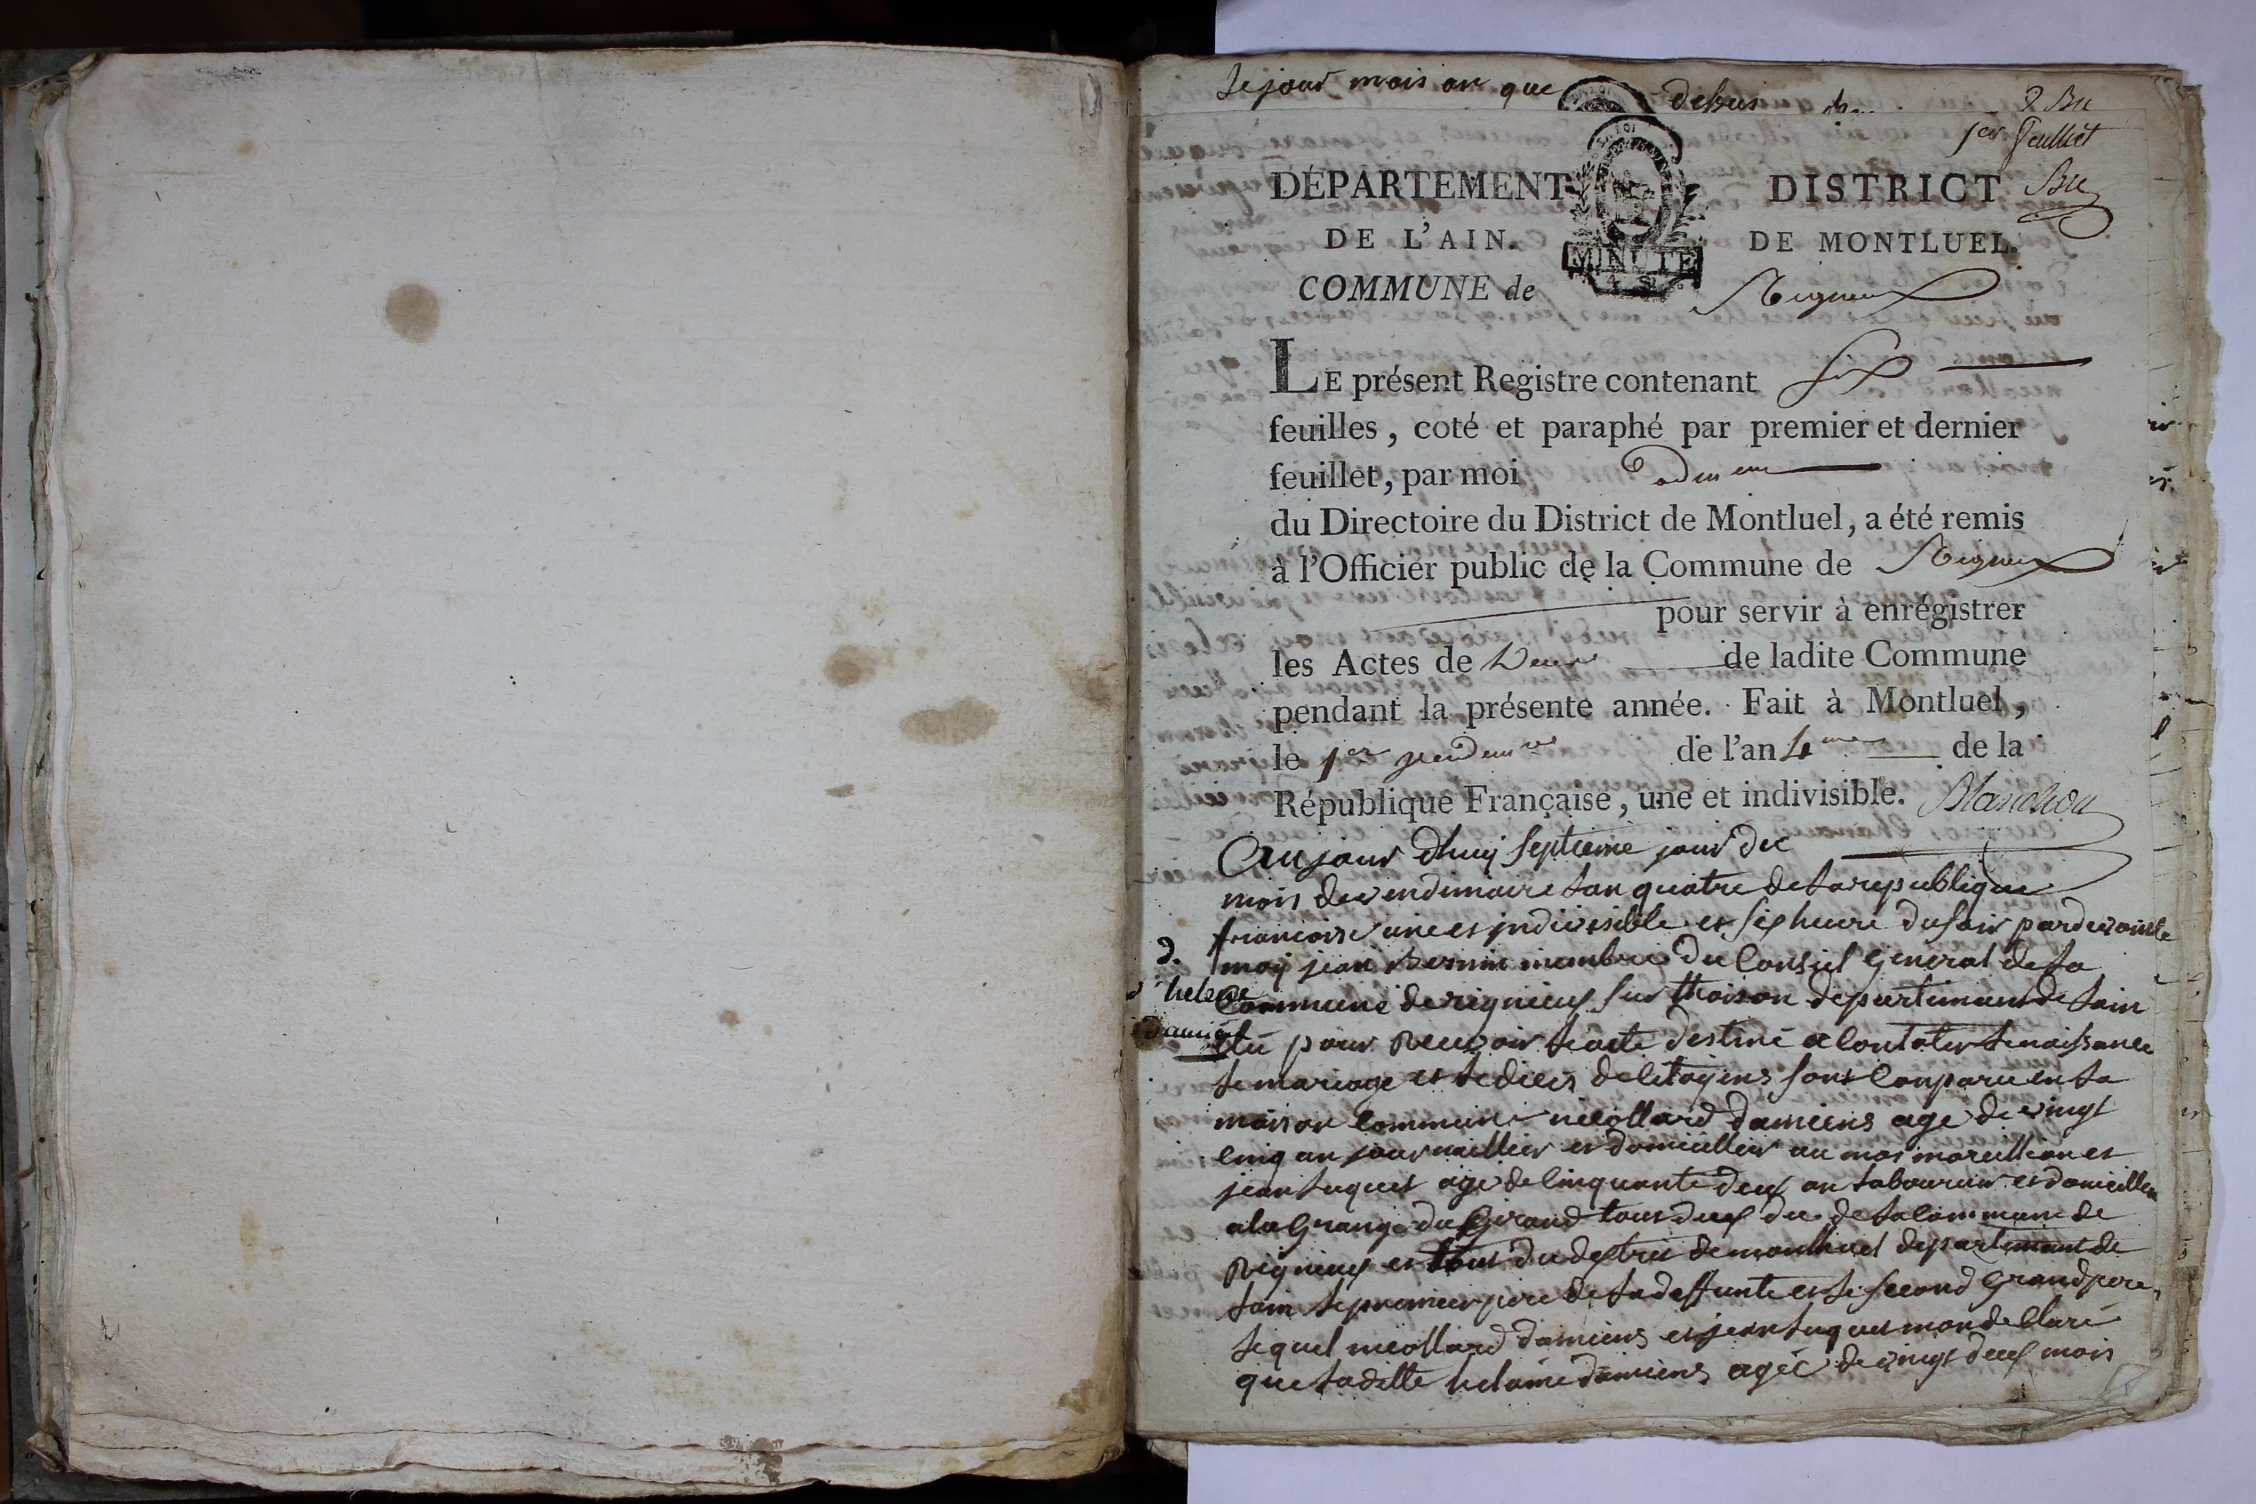 le jour mois an que desus
1er feulliet
DÉPARTEMENT DISTRICT
DE L'AIN. DE MONTLUEL.
MINUTE
COMMUNE de Rigneux
LE présent Registre contenant six
feuilles, coté et paraphé par premier et dernier
feuillet, par moi
du Directoire du District de Montluel, a été remis
à l'Officier public de la Commune de Rigneux
pour servir à enrégistrer
les Actes de de ladite Commune
pendant la présente année. Fait à Montluel,
le 1er vendemre de l'an 4me de la
République Française, une et indivisible. Blanchon
Aujour dhuy septieme jour du
mois de vendimaire lan quatre de la republique
francoise une et jndivisible et six heure du soir pardevant
moy jean membre du Conseil General de la
2.
helene
Commune de rignieux sur thoison departimant de lain
damiens
élu pour recevoir le acte destiné a Constater le naissance
le mariage et le dices de Citoyens sont Conparu en la
maison Commune meollard damiens age de vingt
cinq an journaillier et domicillier au mas morellion et
jean luquet age de Cinquante deux an laboureur et domicillier
a la Grange du Girand tout deux de la Commune de
Rignieux et tout du destric de montluel departimant de
lain le premier pere de la deffunte et le second Grand pere
lequel meollard damiens et jean luquet mon declaré
que laditte helaine damiens agée de vingt deux mois